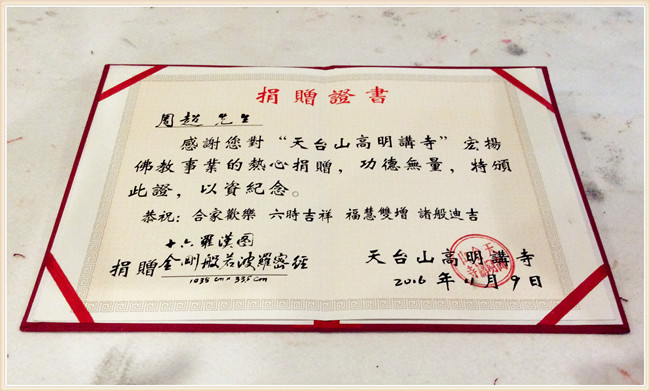 捐贈證書
周超 先生
感謝您對“天台山高明講寺”宏揚
佛教事業的熱心捐贈，功德無量，特頒
此證，以資紀念。
恭祝：合家歡樂 六時吉祥 福慧雙增 諸般迪吉
十六羅漢圖
捐贈 金剛般若波羅密經
1035cm×335cm
天台山高明講寺
2016年11月9日